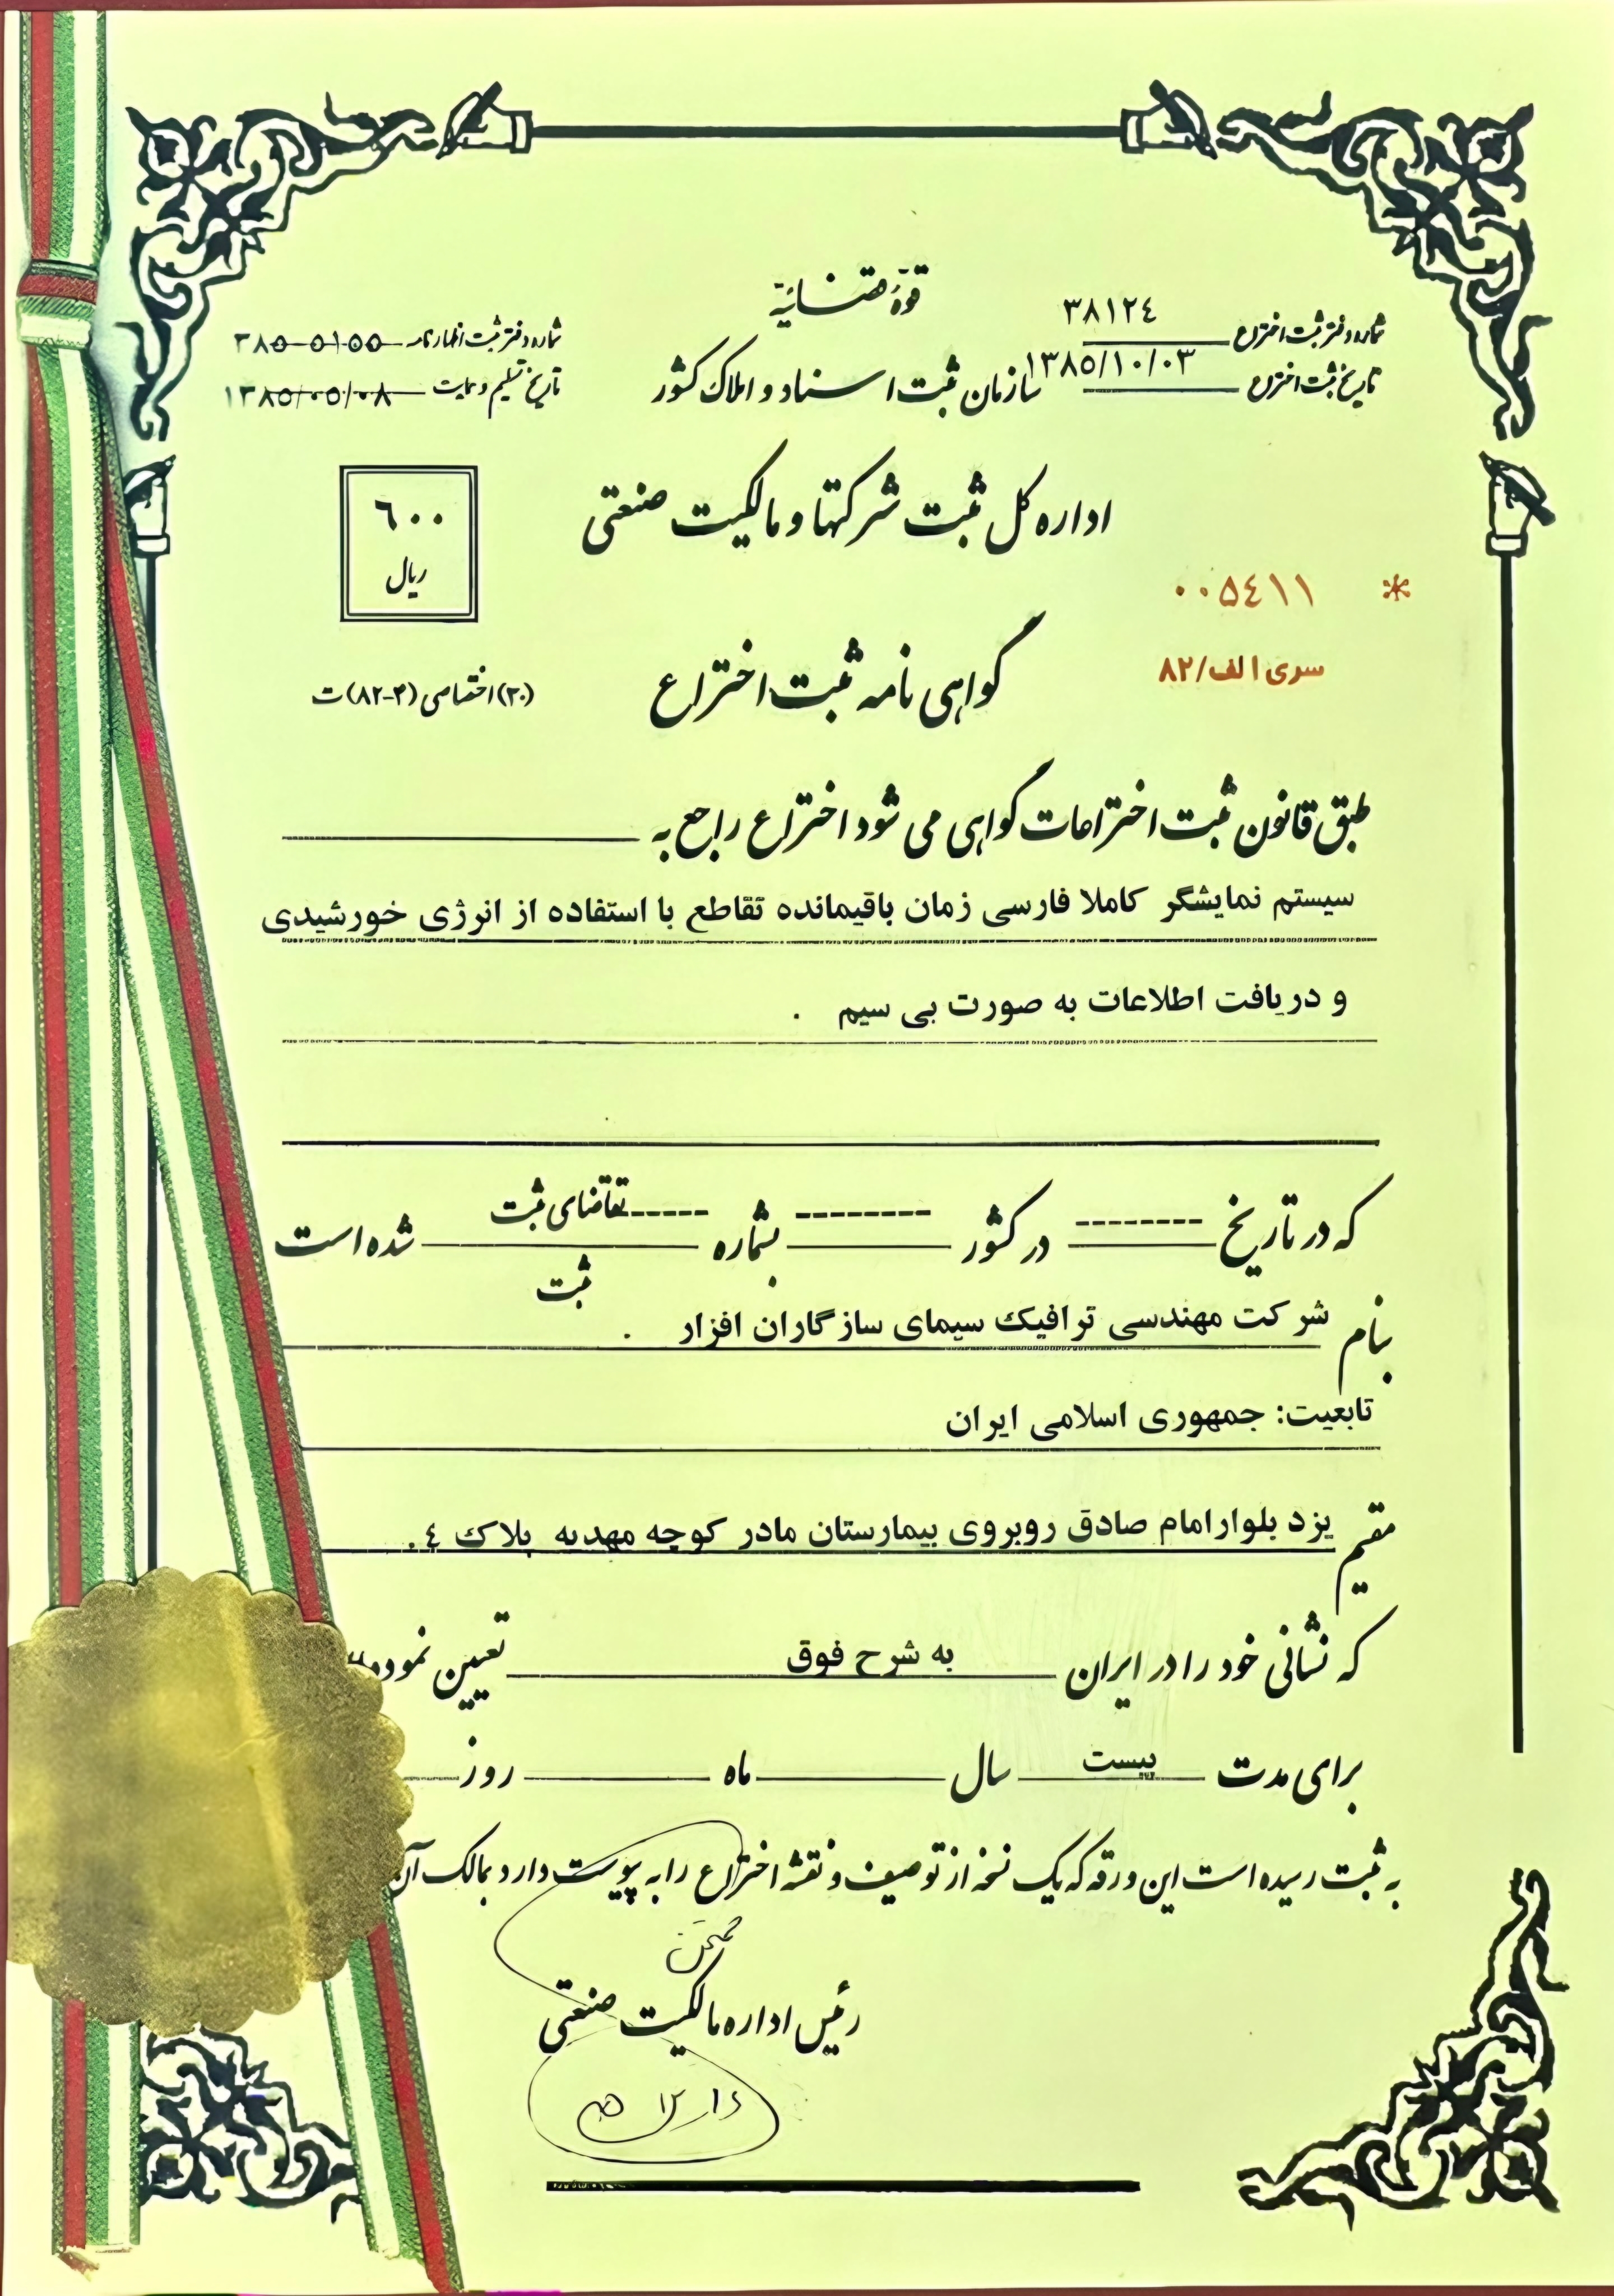 قوهٔ قضائیه
شماره دفتر ثبت اختراع ۳۸۱۲۴
تاریخ ثبت اختراع ۱۳۸۵/۱۰/۰۳
سازمان ثبت اسناد و املاک کشور
شماره دفتر ثبت اظهارنامه ۳۸۵۰۵۱۵۵
تاریخ تسلیم و ساعت ۱۳۸۵/۰۵/۰۸
اداره کل ثبت شرکتها و مالکیت صنعتی
۶۰۰
ریال
* ۰۰۵۴۱۱
سری الف/۸۲
گواهی نامه ثبت اختراع
(۳۰) اختصاصی (۳-۸۲) ت
طبق قانون ثبت اختراعات گواهی می شود اختراع راجع به
سیستم نمایشگر کاملا فارسی زمان باقیمانده تقاطع با استفاده از انرژی خورشیدی
و دریافت اطلاعات به صورت بی سیم .
که در تاریخ -------- در کشور -------- بشماره ----- تقاضای ثبت شده است
ثبت
بنام شرکت مهندسی ترافیک سیمای سازگاران افزار .
تابعیت: جمهوری اسلامی ایران
مقیم یزد بلوار امام صادق روبروی بیمارستان مادر کوچه مهدیه پلاک ٤.
که نشانی خود را در ایران به شرح فوق تعیین نموده
برای مدت بیست سال ماه روز
به ثبت رسیده است این ورقه که یک نسخه از توصیف و نقشه اختراع را به پیوست دارد بمالک آن
رئیس اداره مالکیت صنعتی